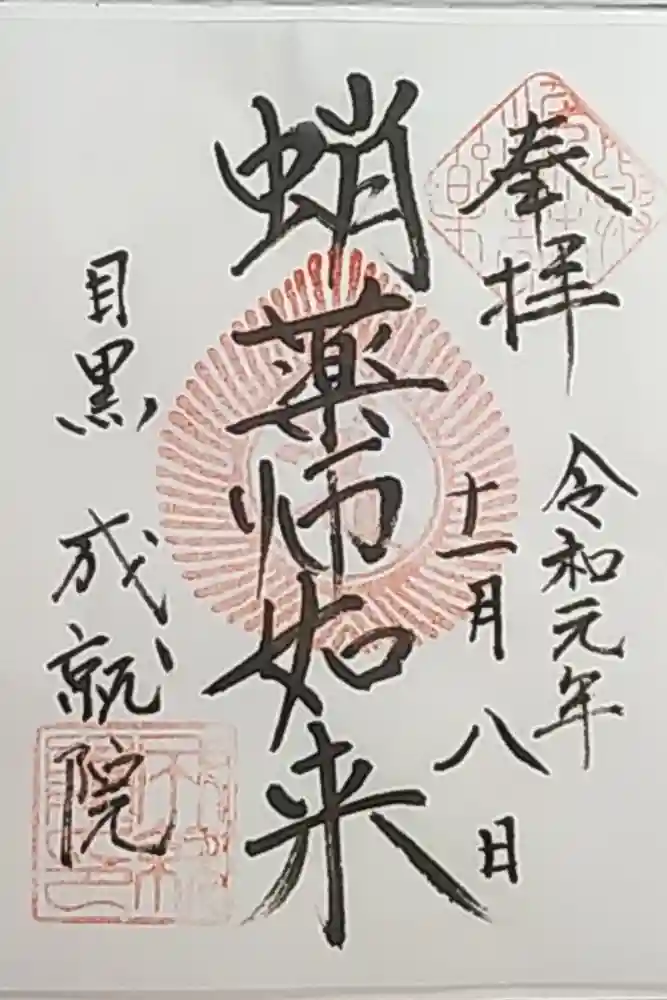 奉拝
令和元年
十一月八日
蛸薬師如来
目黒 成就院